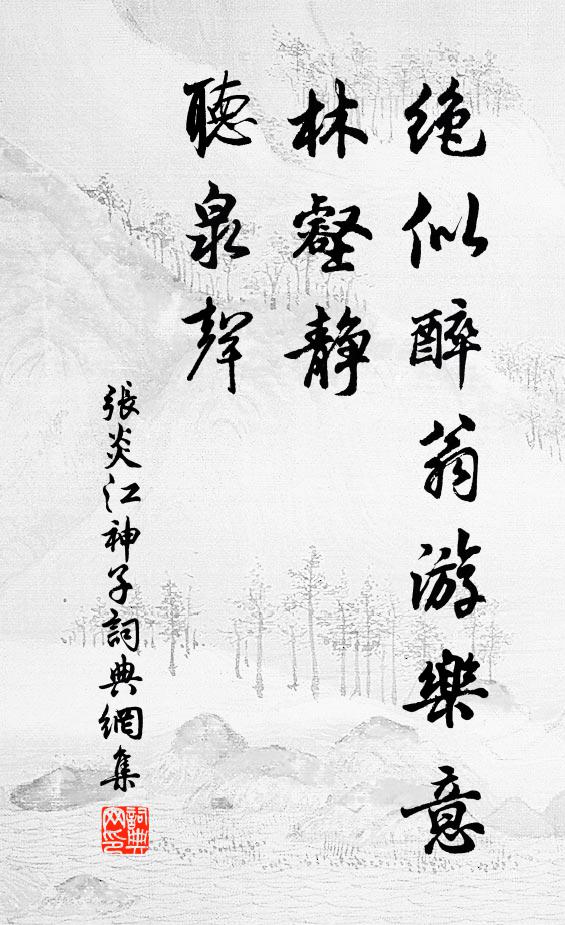 绝似醉翁游樂意
林壑静
聽泉聲
張炎江神子詞典網集
詞典網印